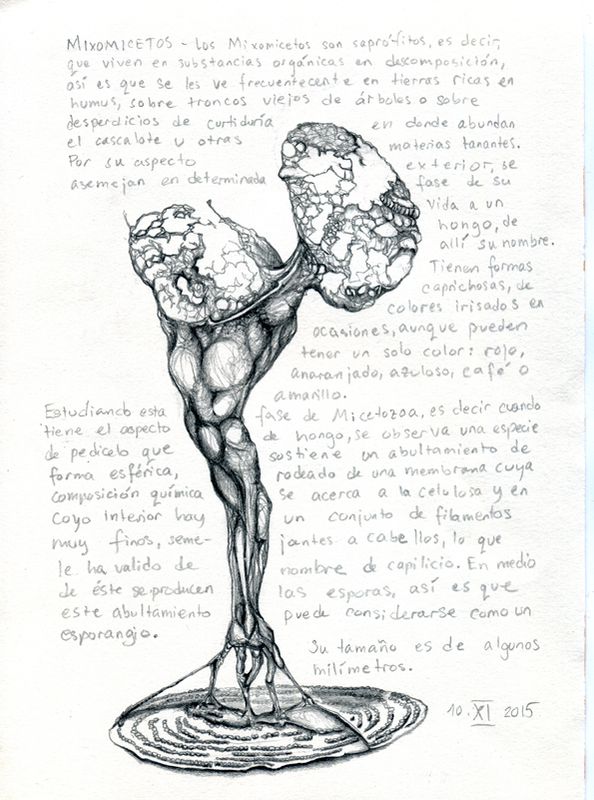 MIXOMICETOS - Los Mixomicetos son saprófitos, es decir,
que viven en substancias orgánicas en descomposición,
así es que se les ve frecuentecente en tierras ricas en
humus, sobre troncos viejos de árboles o sobre
desperdicios de curtiduría en donde abundan
el cascalote u otras materias tanantes.
Por su aspecto exterior, se
asemejan en determinada fase de su
vida a un
hongo, de
allí su nombre.
Tienen formas
caprichosas, de
colores irisados en
ocasiones, aunque pueden
tener un solo color: rojo,
anaranjado, azuloso, café o
amarillo.
Estudiando esta fase de Micetozoa, es decir cuando
tiene el aspecto de hongo, se observa una especie
de pedicelo que sostiene un abultamiento de
forma esférica, rodeado de una membrana cuya
composición química se acerca a la celulosa y en
coyo interior hay un conjunto de filamentos
muy finos, seme- jantes a cabellos, lo que
le ha valido de nombre de capilicio. En medio
de éste se producen las esporas, así es que
este abultamiento puede considerarse como un
esporangio.
Su tamaño es de algunos
milímetros.
10. XI 2015